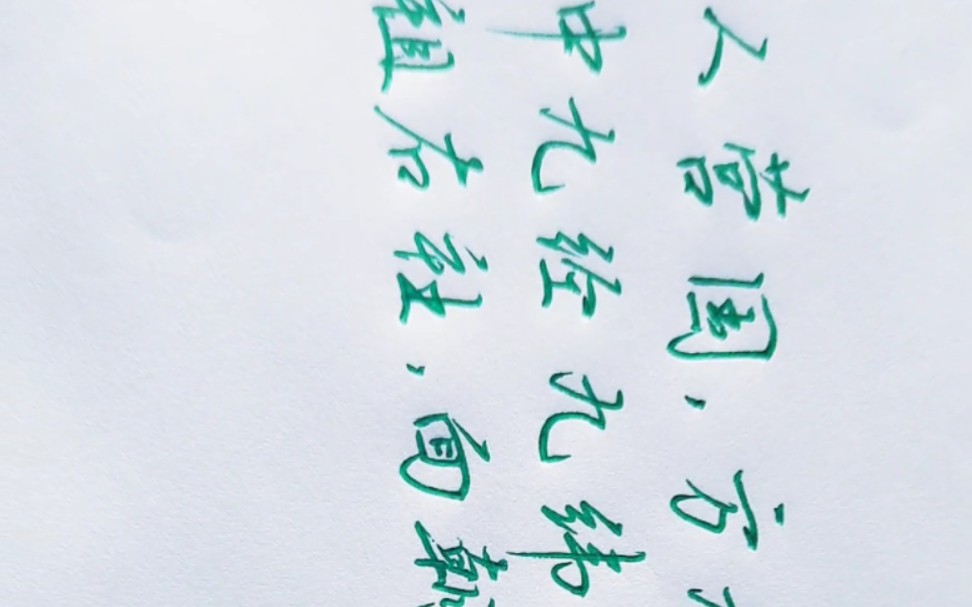 人营国，方
中九经九纬
祖右社，面朝